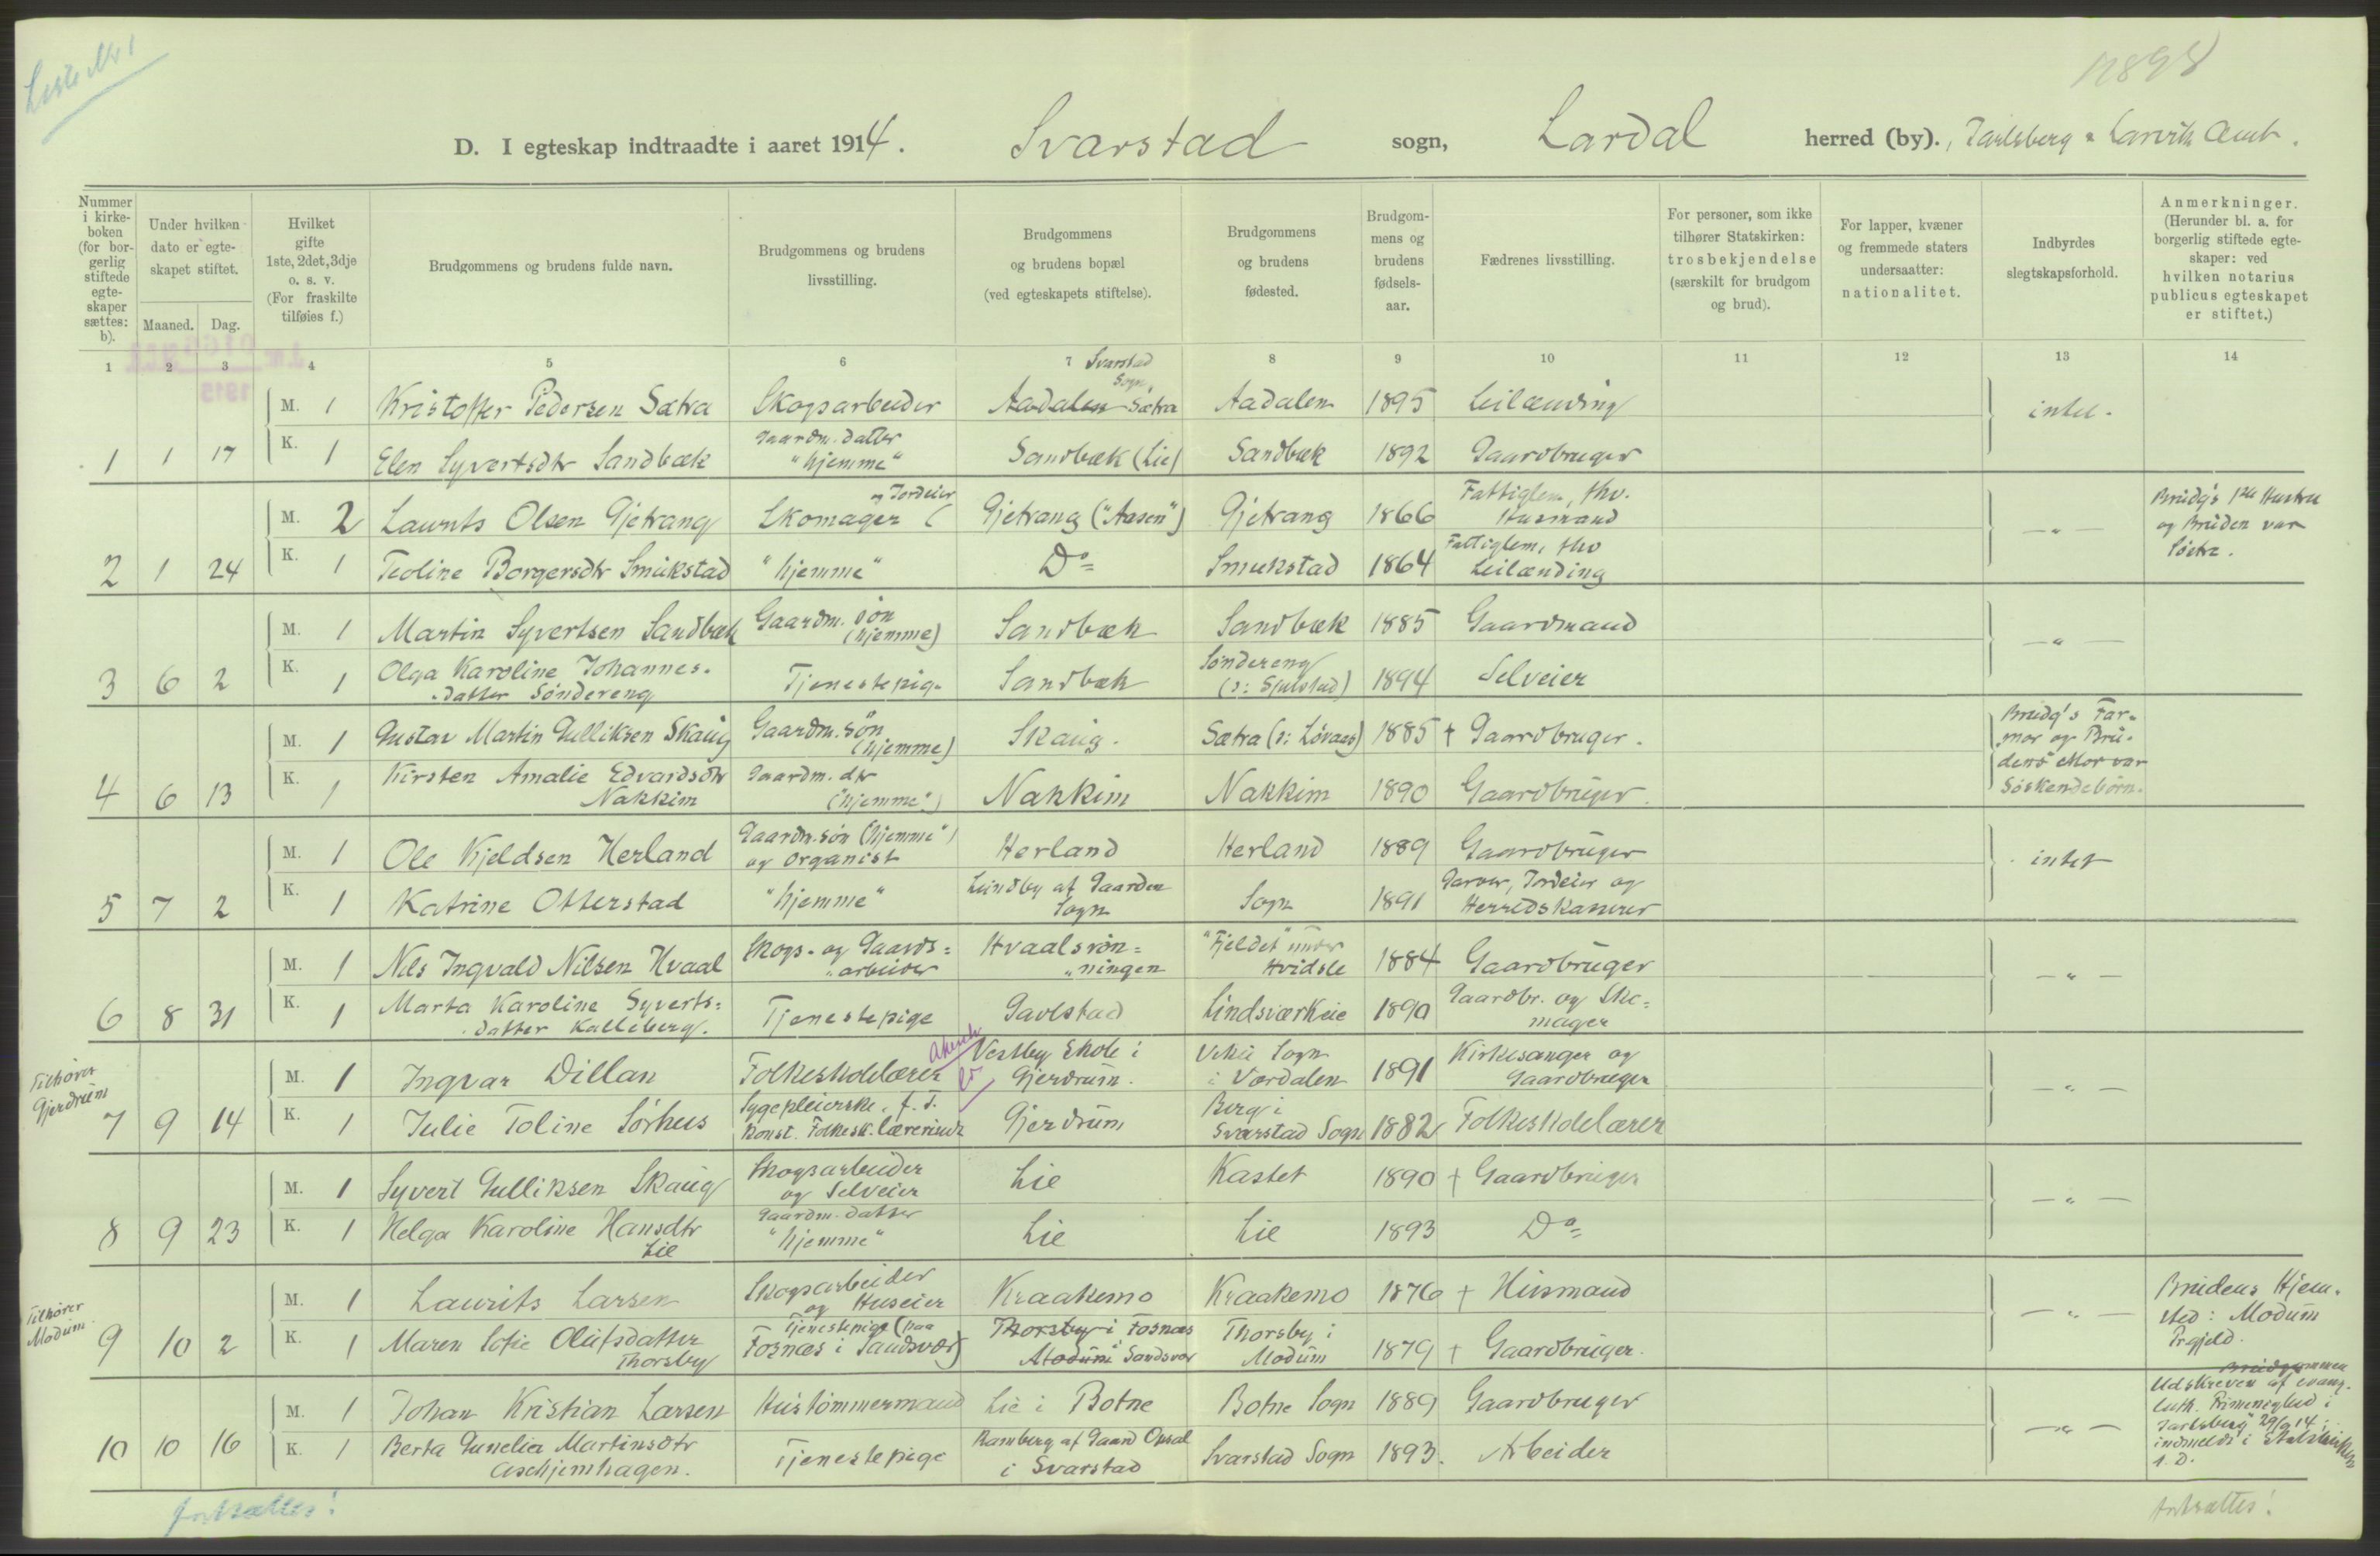 Liste Nr 1
12898
D. I egteskap indtraadte i aaret 1914. Svarstad sogn, Lardal herred (by)., Jarlsberg & Larvik Amt.
Nummer i kirkeboken (for borgerlig stiftede egteskaper sættes: b).
Under hvilken dato er egteskapet stiftet.
Maaned. Dag.
Hvilket gifte 1ste, 2det, 3dje o. s. v. (For fraskilte tilføies f.)
Brudgommens og brudens fulde navn.
Brudgommens og brudens livsstilling.
Brudgommens og brudens bopæl (ved egteskapets stiftelse).
Brudgommens og brudens fødested.
Brudgommens og brudens fødselsaar.
Fædrenes livsstilling.
For personer, som ikke tilhører Statskirken: trosbekjendelse (særskilt for brudgom og brud).
For lapper, kvæner og fremmede staters undersaatter: nationalitet.
Indbyrdes slegtskapsforhold.
Anmerkninger. (Herunder bl. a. for borgerlig stiftede egteskaper: ved hvilken notarius publicus egteskapet er stiftet.)
1 2 3 4 5 6 7 8 9 10 11 12 13 14
M. 1 Kristoffer Pedersen Sætra Skogsarbeider Aadalen Sætra Svarstad Sogn, Aadalen 1895 Leilænding intet.
1 1 17 K. 1 Elen Syvertsdtr Sandbæk Gaardm. datter "hjemme" Sandbæk (Lie) Sandbæk 1892 Gaardbruger
M. 2 Laurits Olsen Gjetrang Skomager og Jordeier Gjetrang ("Aasen") Gjetrang 1866 Fattiglem, fhv. Husmand — " — Brudg's 1ste Hustru og Bruden var Søstre.
2 1 24 K. 1 Teoline Borgersdtr Smukstad "hjemme" Do= Smukstad 1864 Fattiglem, fhv Leilænding
M. 1 Martin Syvertsen Sandbæk Gaardm. søn (hjemme) Sandbæk Sandbæk 1885 Gaardmand — " —
3 6 2 K. 1 Olga Karoline Johannes-datter Søndereng Tjenestepige Sandbæk Søndereng 1894 Selveier
M. 1 Gustav Martin Gulliksen Skaug Gaardm. søn (hjemme) Skaug. Sætra (ɔ: Løvaas) 1885 + Gaardbruger. Brudg's Farmor og Brudens Mor var Søskendebørn.
4 6 13 K. 1 Kirsten Amalie Edvardsdtr Nakkim Gaardm. dtr ("hjemme") Nakkim Nakkim 1890 Gaardbruger.
M. 1 Ole Kjeldsen Herland Gaardm. søn ("hjemme") og Organist Herland Herland 1889 Gaardbruger intet
5 7 2 K. 1 Katrine Otterstad "hjemme" Lundby af Gaarden Sogn Sogn 1891 Garver, Jordeier og Herredskaserer
M. 1 Nils Ingvald Nilsen Hvaal Skogs- og Gaards=arbeider Hvaalsrøn=ningen "Fjeldet" under Hvidsle 1884 Gaardbruger — " —
6 8 31 K. 1 Marta Karoline Syverts=datter Kalleberg. Tjenestepige Gavlstad Lindsværkeie 1890 Gaardbr. og Sko=mager
Tilhører Gjerdrum
M. 1 Ingvar Dillan Folkeskolelærer Vestby Skole i Gjerdrum. Vuku Sogn i Værdalen 1891 Kirkesanger og Gaardbruger — " —
7 9 14 K. 1 Julie Toline Sørhus Sygepleierske, f. t. konst. Folkesk. lærerinde Gjerdrum Berg i Svarstad Sogn 1882 Folkeskolelærer
M. 1 Syvert Gulliksen Skaug Skogsarbeider og Selveier Lie Kastet 1890 + Gaardbruger — " —
8 9 23 K. 1 Helga Karoline Hansdtr Lie Gaardm. datter "hjemme" Lie Lie 1893 Do=
Tilhører Modum.
M. 1 Laurits Larsen Skogsarbeider og Huseier Kraakemo Kraakemo 1876 + Husmand — " — Brudens Hjemsted: Modum Prgjeld.
9 10 2 K. 1 Maren Sofie Olufsdatter Thorsby Tjenestepige (paa Fosnæs i Sandsvær) Thorsby i Modum Fosnæs i Sandsvær Thorsby i Modum 1879 + Gaardbruger.
M. 1 Johan Kristian Larsen Hustømmermand Lie i Botne Botne Sogn 1889 Gaardbruger — " — Brudgommen Udskreven af evang. luth. Frimenighed i Jarlsberg 29/9 14; indmeldt i Statskirken s. D.
10 10 16 K. 1 Berta Gunelia Martinsdtr Aschjemhagen. Tjenestepige Ramberg af Gaard Opsal i Svarstad Svarstad Sogn 1893. Arbeider
fortsættes! fortsættes!